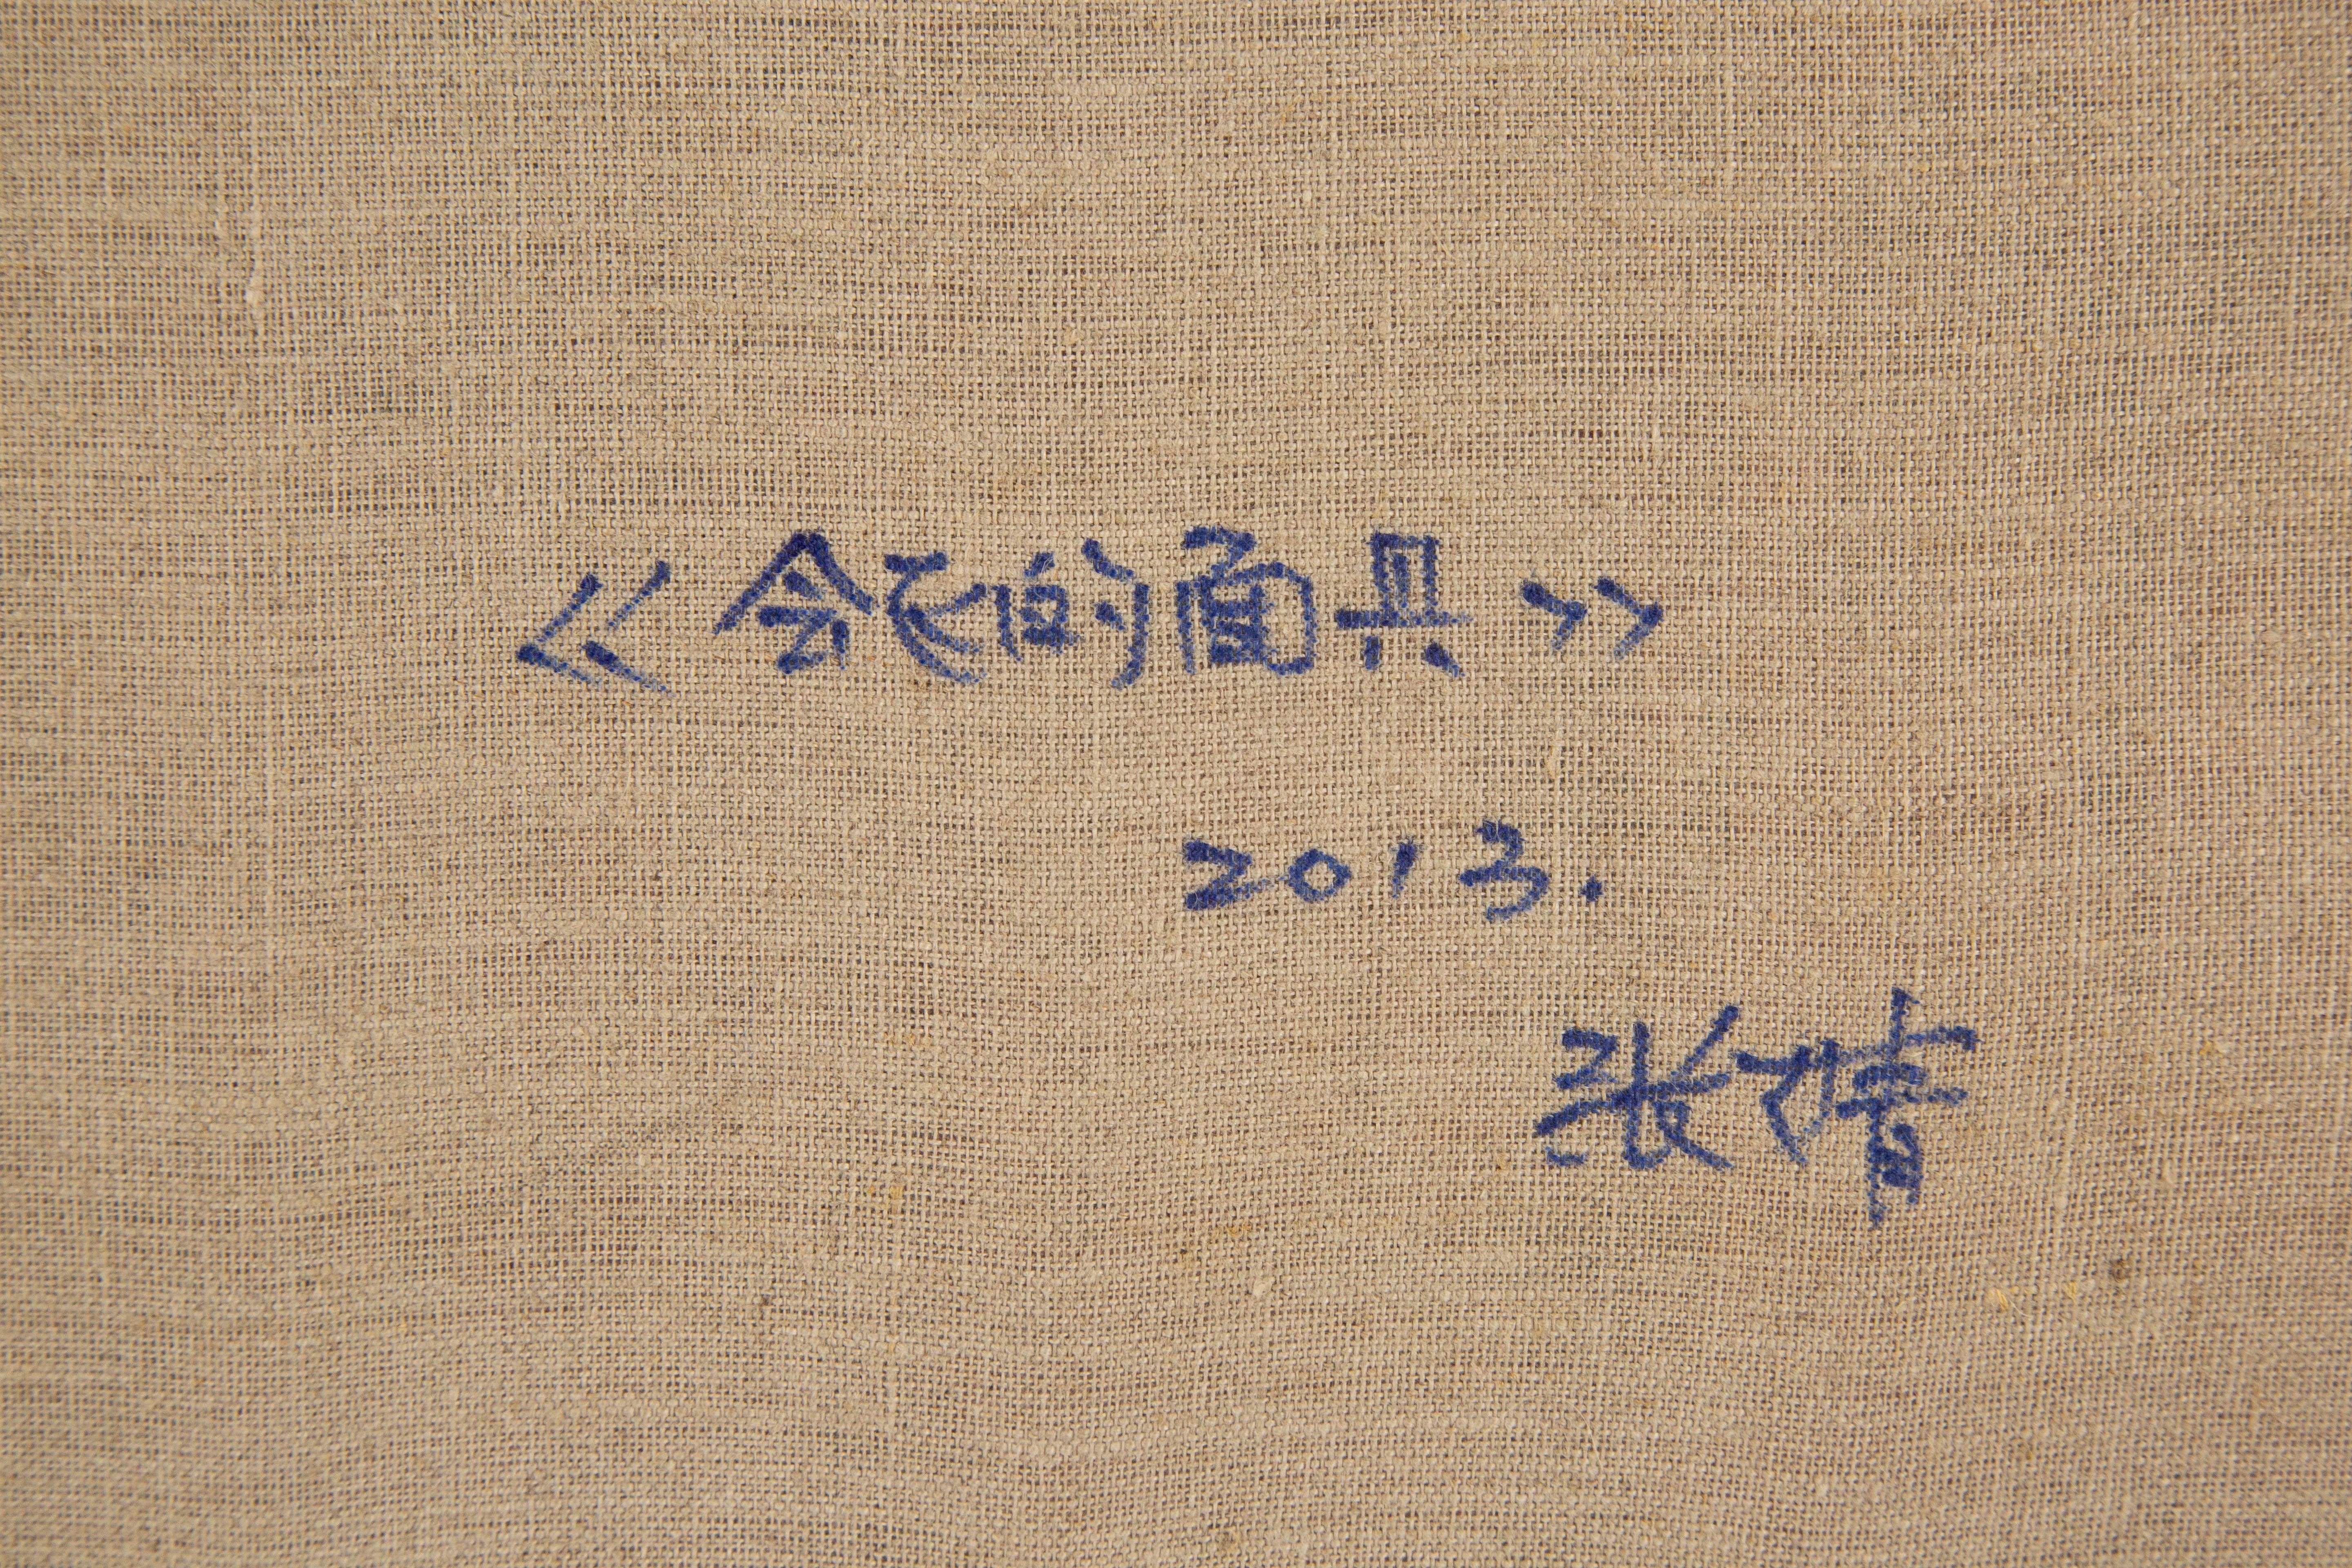 《会飞的面具》
2013.
张晴